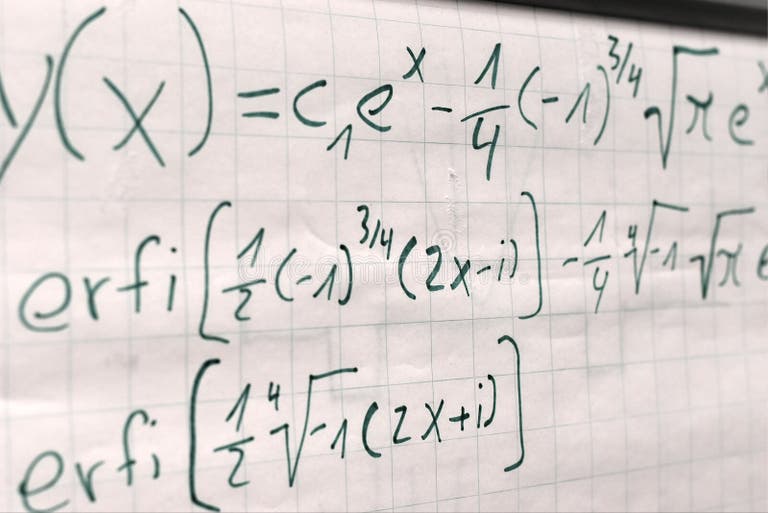 y(x) = c₁eˣ - 1/4 (-1)^3/4 √π eˣ
erfi [1/2 (-1)^3/4 (2x-i)] - 1/4 ∜-1 √π e
erfi [1/2 ∜-1 (2x+i)]